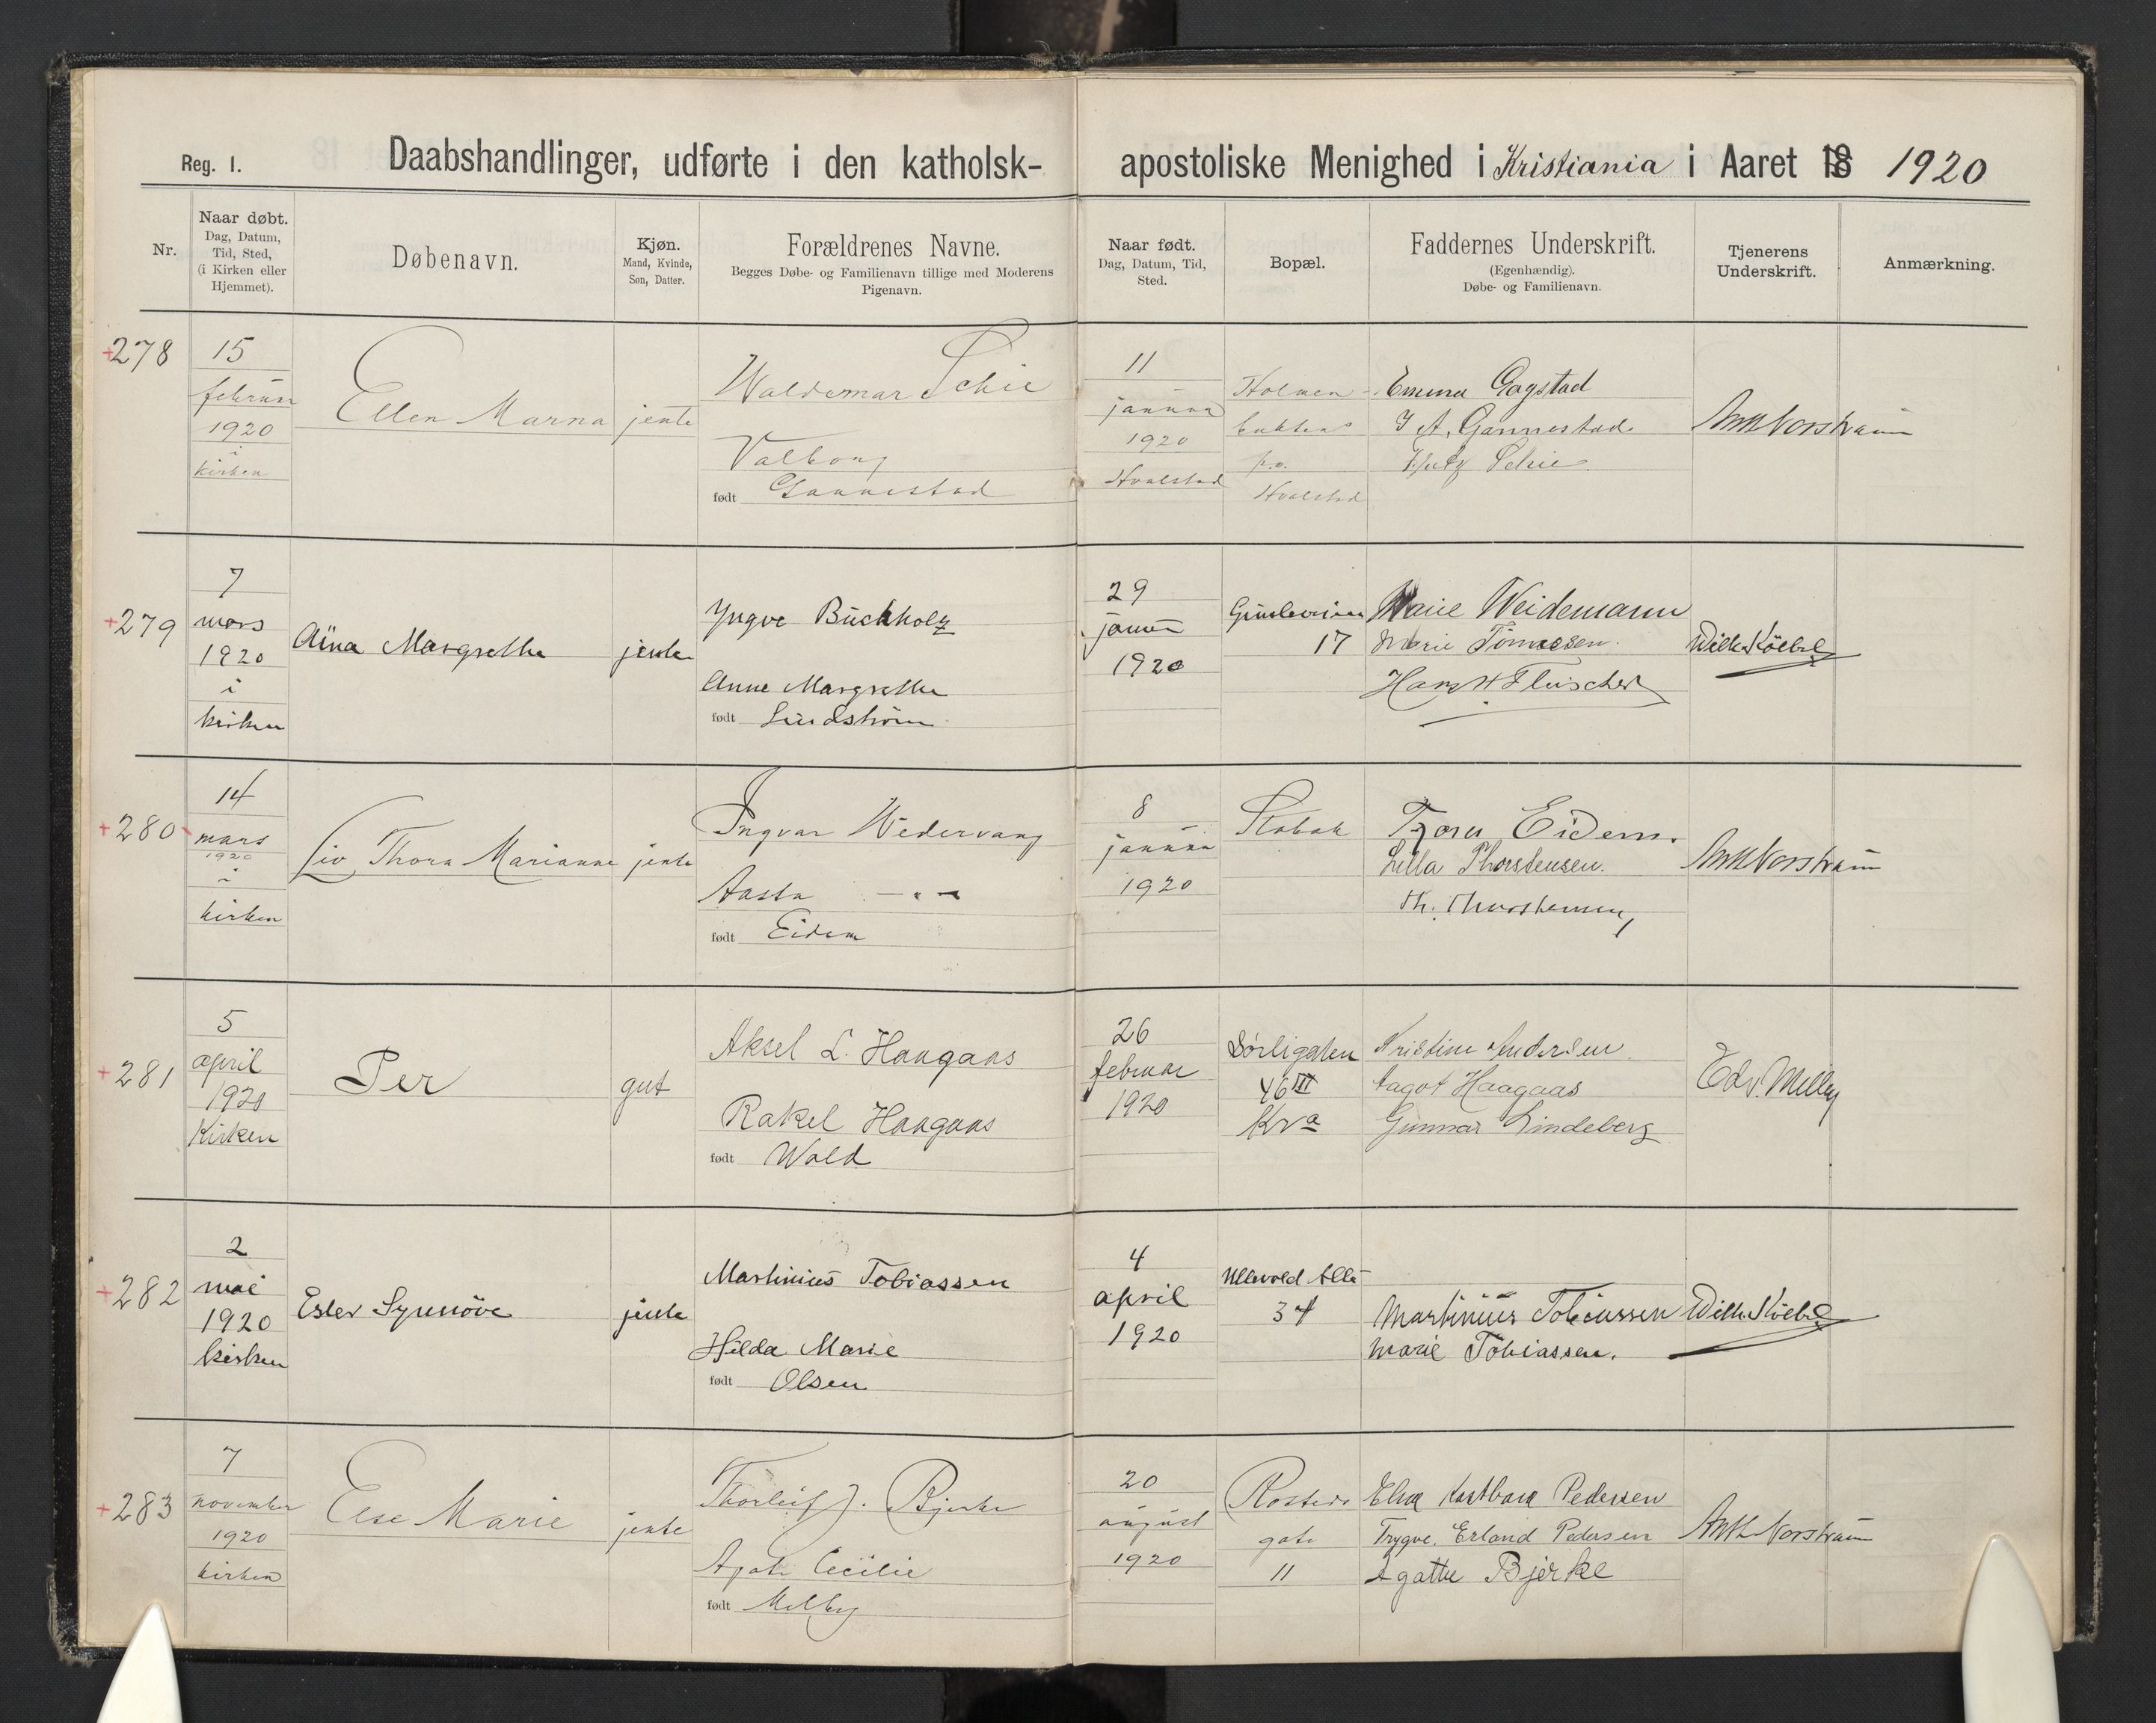 Reg. 1.
Daabshandlinger, udførte i den katholsk-apostoliske Menighed i Kristiania i Aaret 18 1920
Nr.
Naar døbt.
Dag, Datum,
Tid, Sted,
(i Kirken eller
Hjemmet).
Døbenavn.
Kjøn.
Mand, Kvinde,
Søn, Datter.
Forældrenes Navne.
Begges Døbe- og Familienavn tillige med Moderens
Pigenavn.
Naar født.
Dag, Datum, Tid,
Sted.
Bopæl.
Faddernes Underskrift.
(Egenhændig).
Døbe- og Familienavn.
Tjenerens
Underskrift.
Anmærkning.
+278
15
februar
1920
i
kirken
Ellen Marna
jente
Waldemar Schie
Valborg
født Gannestad
11
januar
1920
Hvalstad
Holmen
p.o.
Hvalstad
Emma Gagstad
J A. Gannestad
Schie
+279
7
mars
1920
i
kirken
Aina Margrethe
jente
Yngve Buchholz
Anne Margrethe
født Lindstrøm
29
januar
1920
17
Marie Weidemann
Marie Tømmesen.
Hans H Fleischer
+280
14
mars
1920
i
kirken
Liv Thora Marianne
jente
Ingvar Wedervang
Aasta — " —
født Eidem
8
januar
1920
Stabæk
Thora Eidem.
Lilla Thorstensen.
Th. Thorstensen
+281
5
april
1920
Kirken
Per
gut
Aksel L. Haagaas
Rakel Haagaas
født Wold
26
februar
1920
Sørligaten
46 III
Kra
Kristine Andersen
Aagot Haagaas
Gunnar Lindeberg
+282
2
mai
1920
kirken
Ester Synnöve
jente
Martinius Tobiassen
Hilda Marie
født Olsen
4
april
1920
Ullevold Allé
34
Martinius Tobiassen
Marie Tobiassen.
+283
7
november
1920
kirken
Else Marie
jente
Thorleif J. Bjerke
Agate Cecilie
født Melby
20
august
1920
Rosteds
gate
11
Elna Pedersen
Trygve. Erland Pedersen
Agathe Bjerke